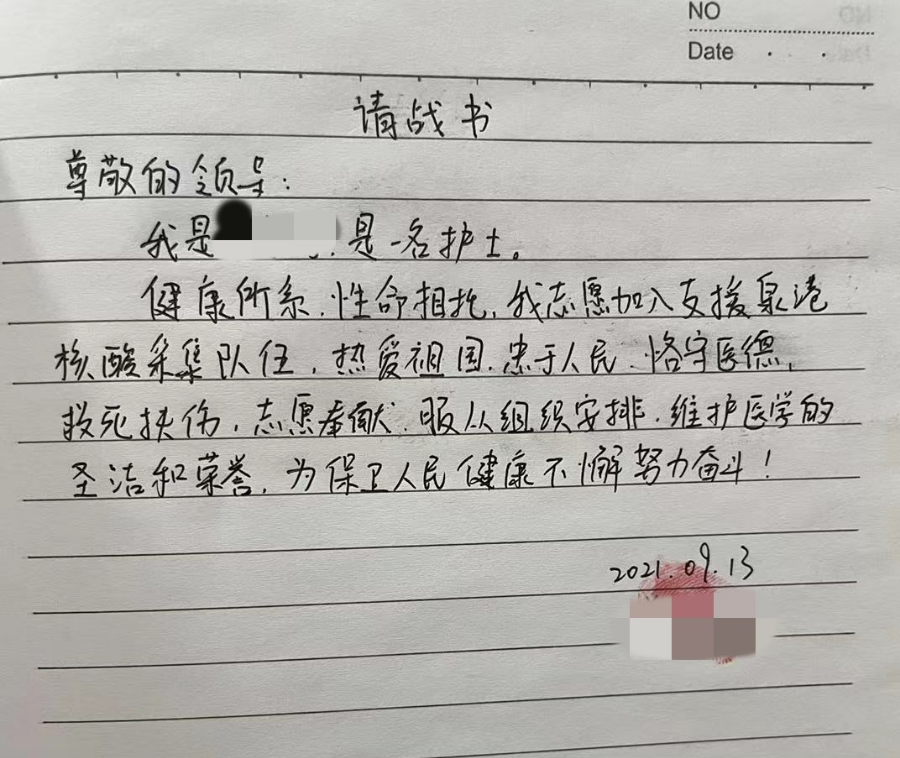 NO
Date
请战书
尊敬的领导：
我是 是一名护士。
健康所系、性命相托，我志愿加入支援泉港
核酸采集队伍，热爱祖国、忠于人民、恪守医德，
救死扶伤，志愿奉献、服从组织安排，维护医学的
圣洁和荣誉，为保卫人民健康不懈努力奋斗！
2021.09.13